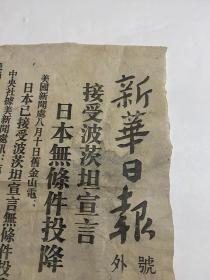 新華日報
外號
接受波茨坦宣言
日本無條件投降
美國新聞處八月十日舊金山電：
日本已接受波茨坦宣言無條件投降
中央社據美新聞處訊：